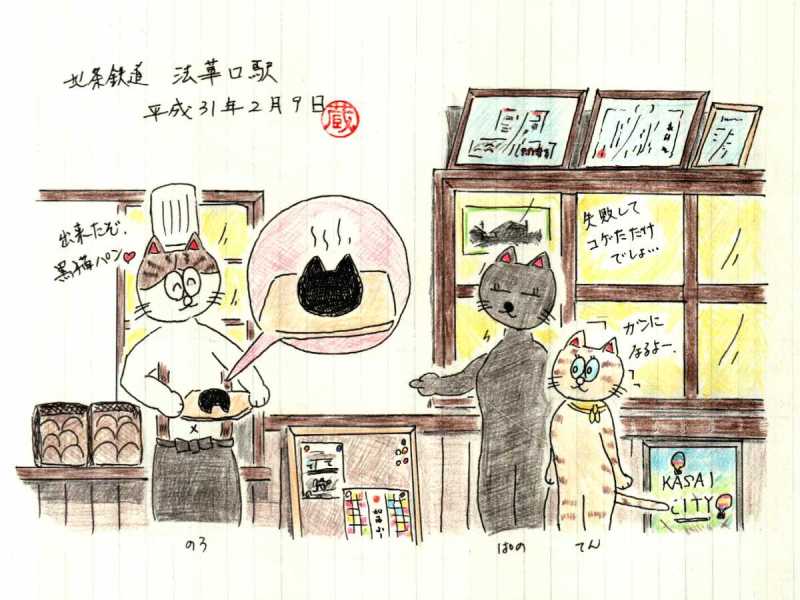 北条鉄道 法華口駅
平成31年2月9日
蔵
出来たぞ、
黒猫パン♥
失敗して
コゲただけ
でしょ…
ガンに
なるよー、
KASAI
CITY
のろ
ぱの
てん